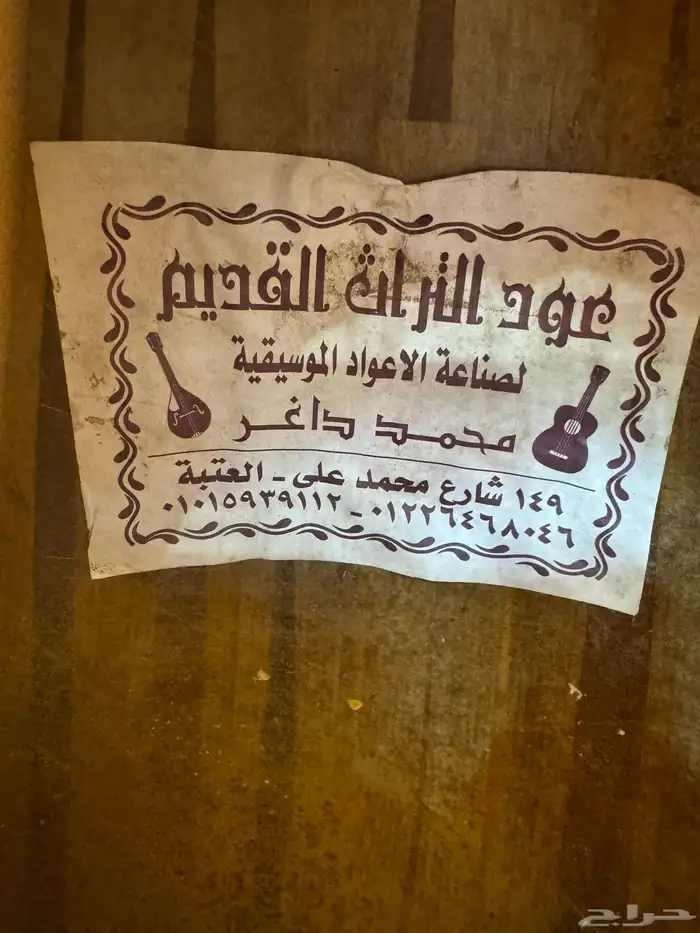 عود التراث القديم
لصناعة الاعواد الموسيقية
محمد داغر
١٤٩ شارع محمد على - العتبة
٠١٢٢٦٤٦٨٠٤٦ - ٠١٠١٥٩٣٩١١٢
حراج